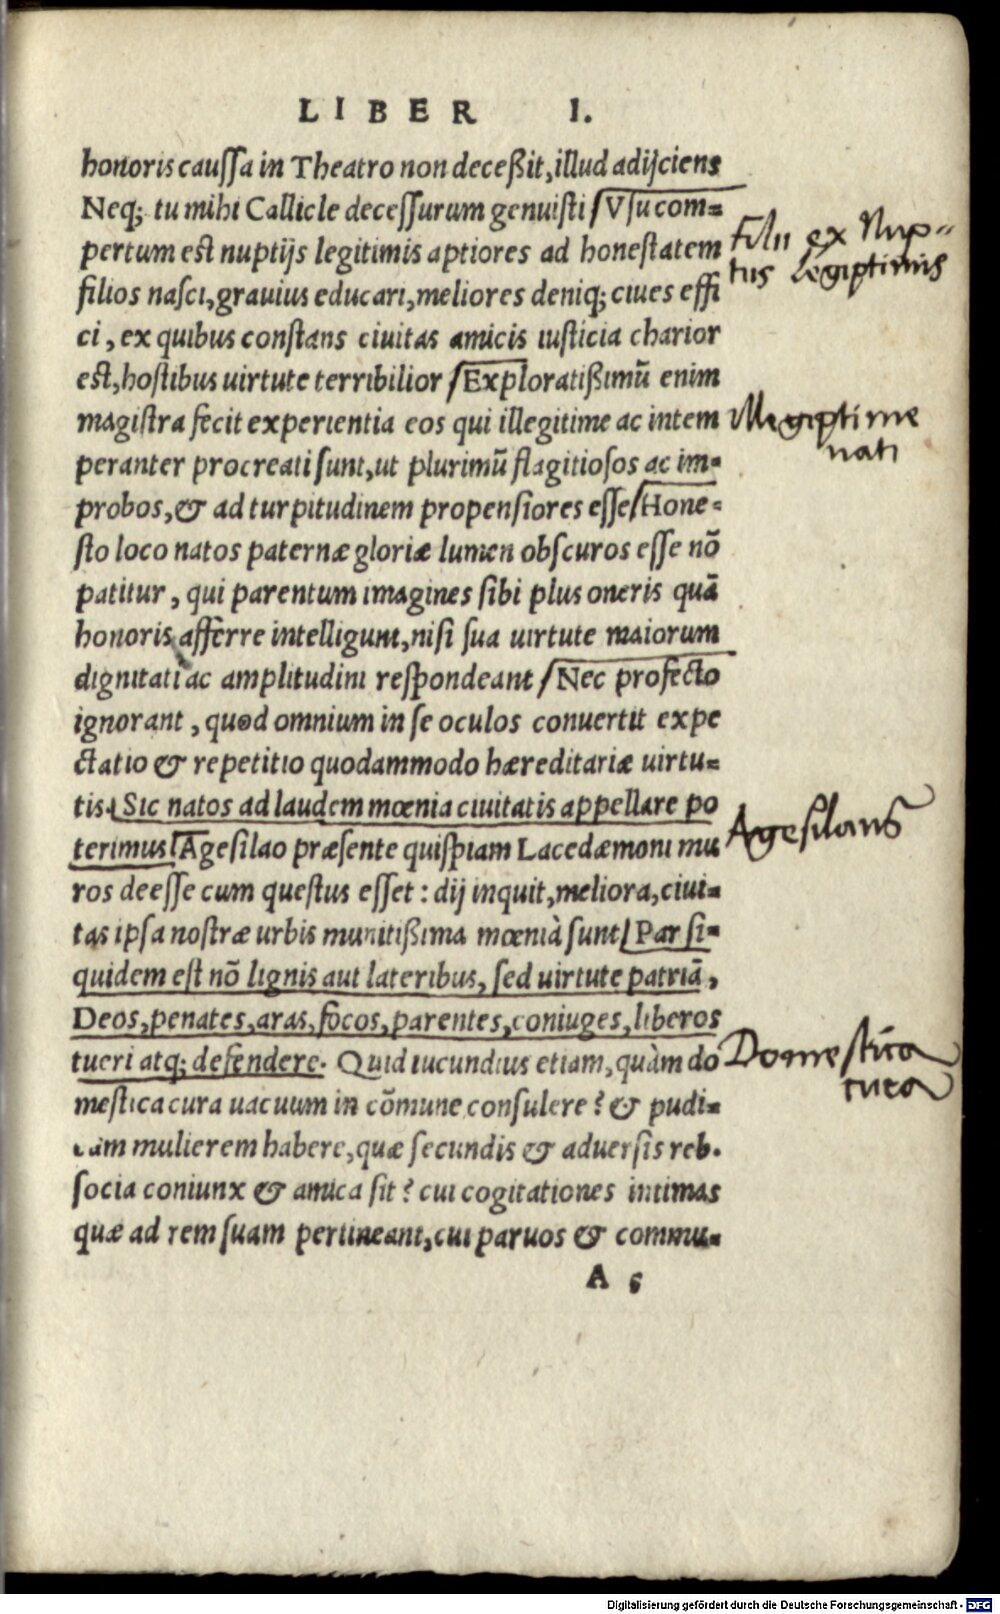 LIBER I.
honoris caussa in Theatro non deceßit, illud adijciens
Neq; tu mihi Callicle decessurum genuisti Vsu com=
pertum est nuptijs legitimis aptiores ad honestatem
filios nasci, grauius educari, meliores deniq; ciues effi
ci, ex quibus constans ciuitas amicis iusticia charior
est, hostibus uirtute terribilior Exploratißimū enim
magistra fecit experientia eos qui illegitime ac intem
peranter procreati sunt, ut plurimū flagitiosos ac im=
probos, & ad turpitudinem propensiores esse Hone=
sto loco natos paternæ gloriæ lumen obscuros esse nō
patitur, qui parentum imagines sibi plus oneris quā
honoris afferre intelligunt, nisi sua uirtute maiorum
dignitati ac amplitudini respondeant Nec profecto
ignorant, quod omnium in se oculos conuertit expe
ctatio & repetitio quodammodo hæreditariæ uirtu=
tis. Sic natos ad laudem mœnia ciuitatis appellare po
terimus Agesilao præsente quispiam Lacedæmoni mu
ros deesse cum questus esset: dij inquit, meliora, ciui=
tas ipsa nostræ urbis munitißima mœnià sunt Par si=
quidem est nō lignis aut lateribus, sed uirtute patriā,
Deos, penates, aras, focos, parentes, coniuges, liberos
tueri atq; defendere. Quid iucundius etiam, quàm do
mestica cura uacuum in cōmune consulere? & pudi=
cam mulierem habere, quæ secundis & aduersis reb.
socia coniunx & amica sit? cui cogitationes intimas
quæ ad rem suam pertineant, cui paruos & commu=
A 5
Filii ex Nup=
tiis Legiptimis
Illegiptime
nati
Agesilaus
Domestica
cura
Digitalisierung gefördert durch die Deutsche Forschungsgemeinschaft - DFG